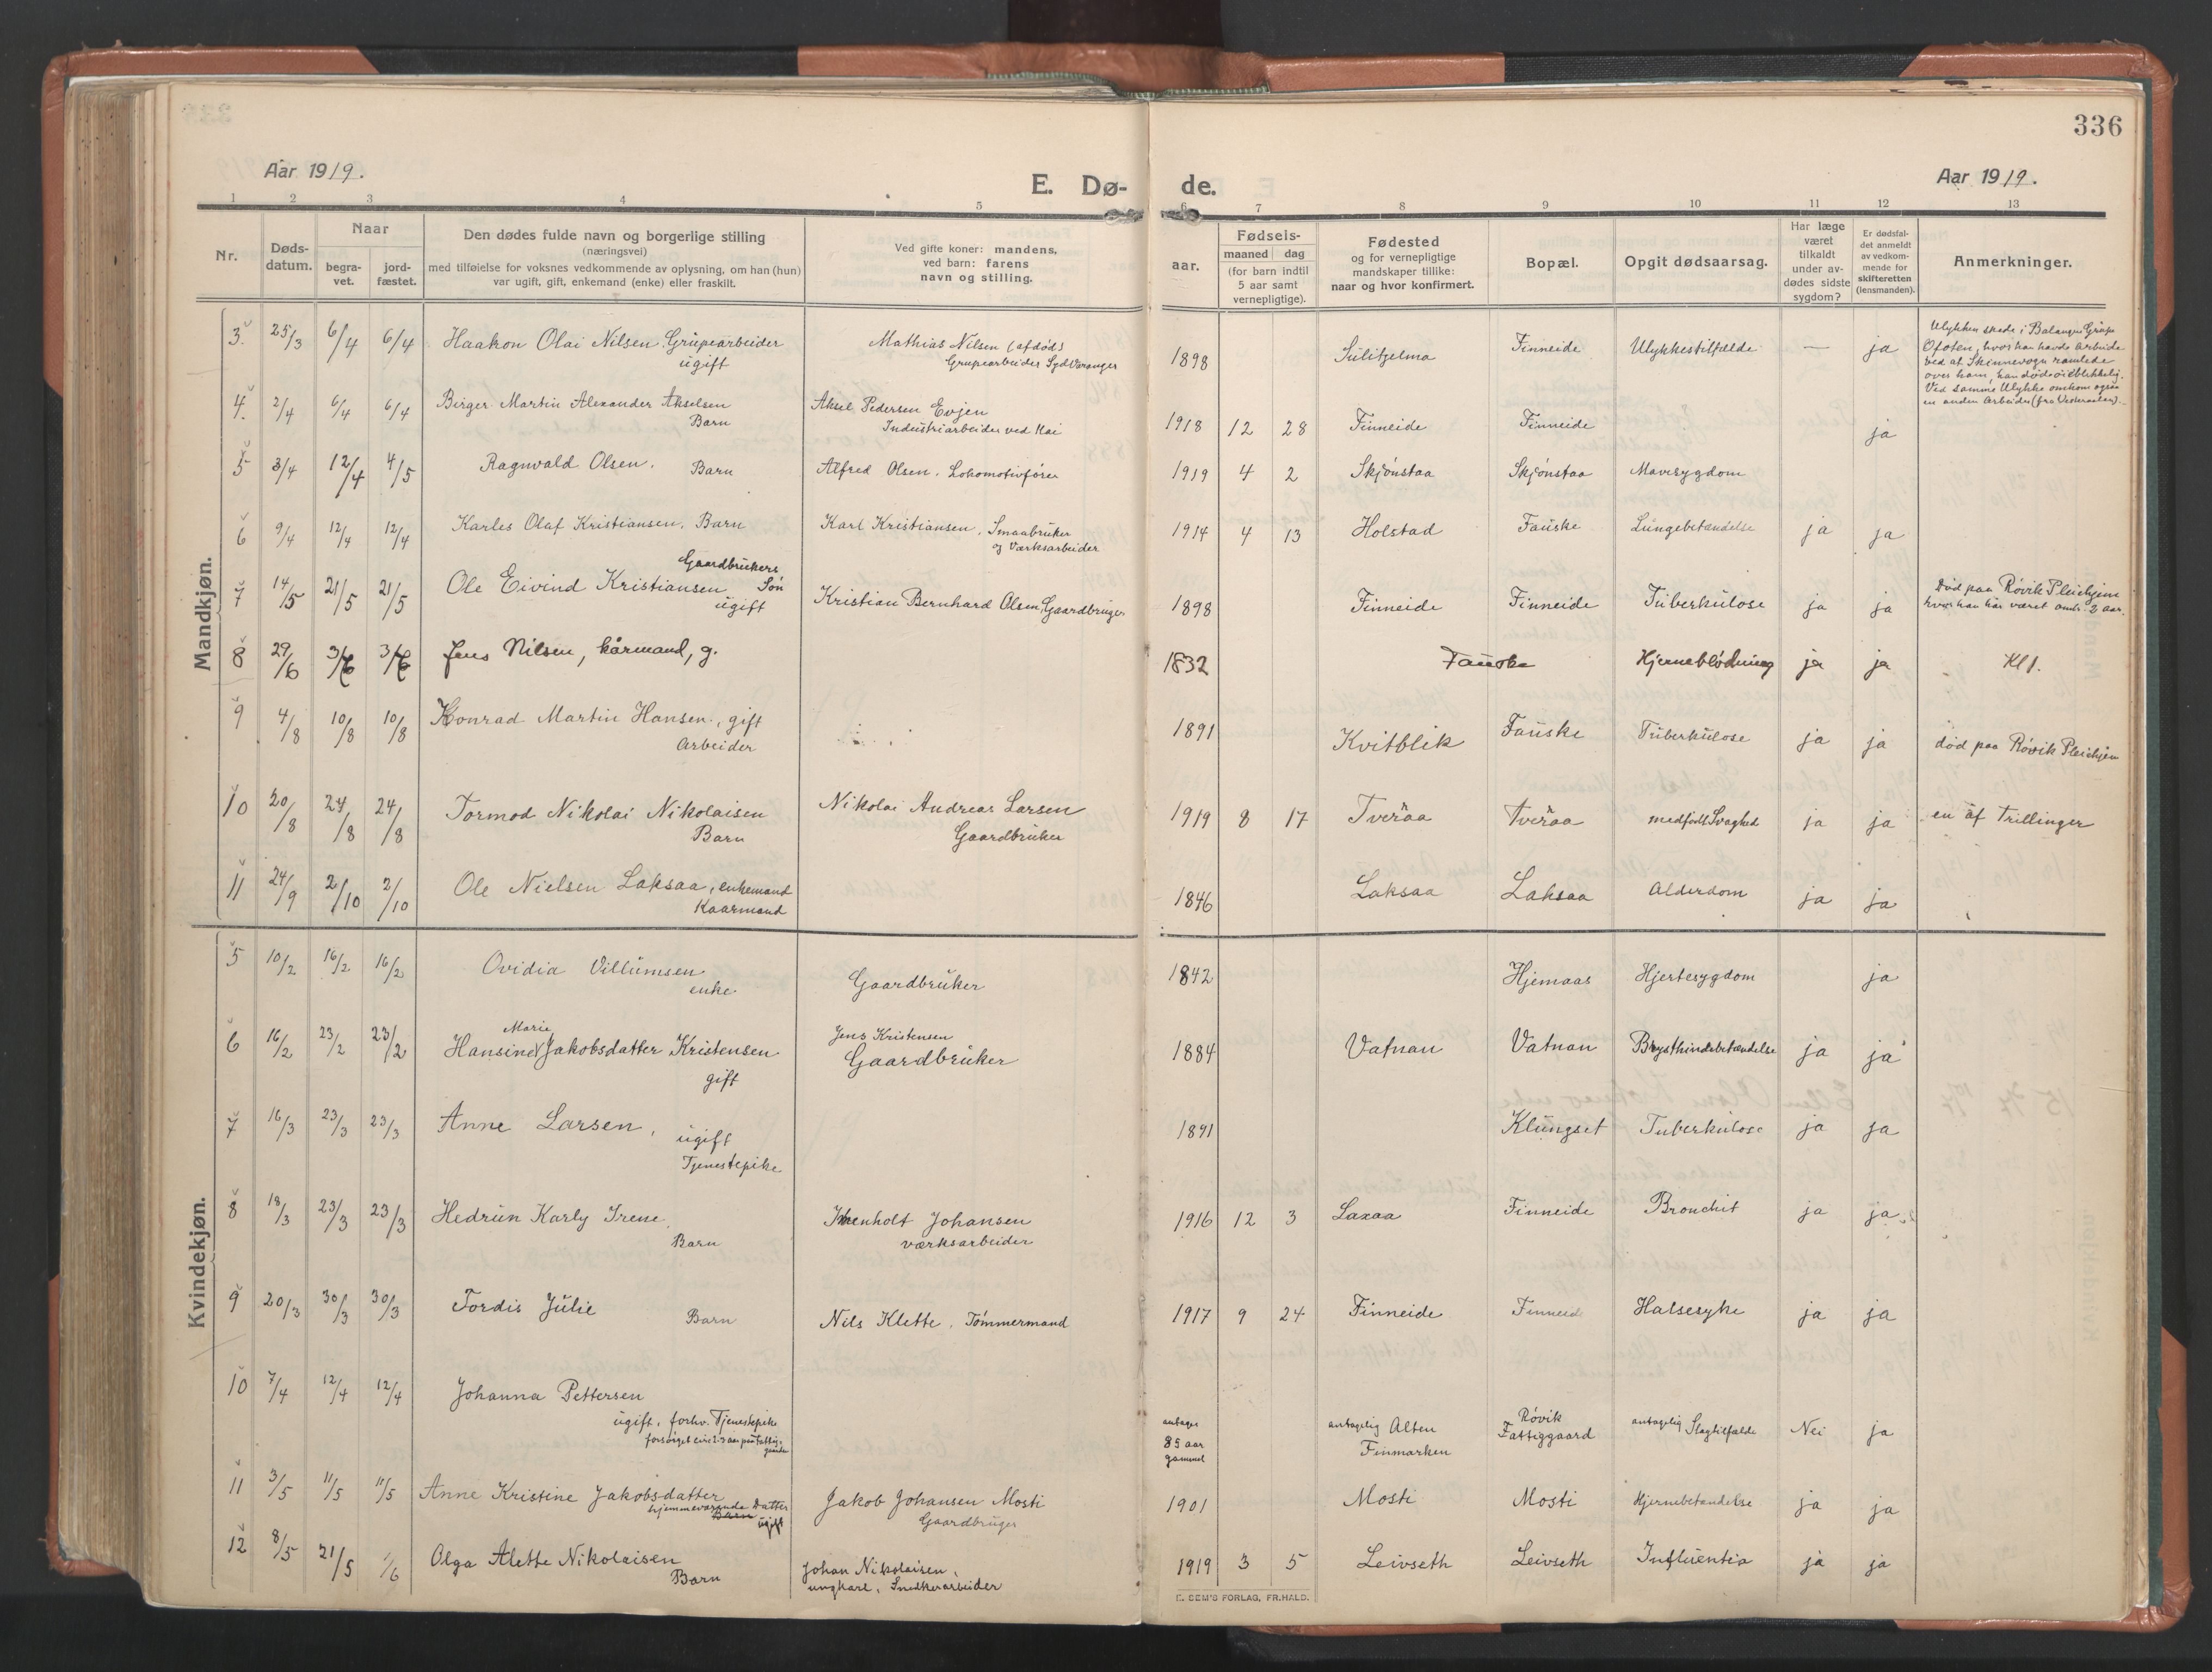 336
Aar 1919.
E. Dø-
de.
Aar 1919.
1 2 3 4 5 6 7 8 9 10 11 12 13
Nr.
Døds-
datum.
Naar
begra-
vet.
jord-
fæstet.
Den dødes fulde navn og borgerlige stilling
(næringsvei)
med tilføielse for voksnes vedkommende av oplysning, om han (hun)
var ugift, gift, enkemand (enke) eller fraskilt.
Ved gifte koner: mandens,
ved barn: farens
navn og stilling.
Fødsels-
aar.
maaned dag
(for barn indtil
5 aar samt
vernepligtige).
Fødested
og for vernepligtige
mandskaper tillike:
naar og hvor konfirmert.
Bopæl.
Opgit dødsaarsag.
Har læge
været
tilkaldt
under av-
dødes sidste
sygdom?
Er dødsfal-
det anmeldt
av vedkom-
mende for
skifteretten
(lensmanden).
Anmerkninger.
Mandkjøn.
3. 25/3 6/4 6/4 Haakon Olai Nilsen Grupearbeider
ugift
Mathias Nilsen (afdød)
Grupearbeider SydVaranger
1898 Sulitjelma Finneide Ulykkestilfælde — ja
Ulykken skede i Balangen Grupe
Ofoten, hvor han havde arbeide
ved at Skinnevogn ramlede
over ham, han døde øieblikkelig.
Ved samme Ulykke omkom ogsaa
en anden Arbeider (fra Vesteraalen).
4. 2/4 6/4 6/4 Birger Martin Alexander Akselsen
Barn
Aksel Pedersen Evjen
Industriarbeider ved Kai
1918 12 28 Finneide Finneide ja
5 3/4 12/4 4/5 Ragnvald Olsen. Barn
Alfred Olsen. Lokomotivfører
1919 4 2 Skjönstaa Skjönstaa Mavesygdom
6 9/4 12/4 12/4 Karles Olaf Kristiansen. Barn
Karl Kristiansen, Smaabruker
og Værksarbeider
1914 4 13 Holstad Fauske Lungebetændelse ja ja
7 14/5 21/5 21/5 Ole Eivind Kristiansen Gaardbrukers
Sön
ugift
Kristian Bernhard Olsen, Gaardbruger
1898 Finneide Finneide Tuberkulose ja ja
Död paa Rövik Pleiehjem
hvor han har været omtr. 2 aar.
8 29/6 3/7 3/7 Jens Nilsen, kårmand, g.
1832 Fauske Hjerneblödning ja ja Kl 1.
9 4/8 10/8 10/8 Konrad Martin Hansen, gift
Arbeider
1891 Kvitblik Fauske Tuberkulose ja ja död paa Rövik Pleiehjem
10 20/8 24/8 24/8 Tormod Nikolai Nikolaisen
Barn
Nikolai Andreas Larsen
Gaardbruker
1919 8 17 Tveraa Tveraa medfödt Svaghed ja ja en af Trillinger
11 24/9 2/10 2/10 Ole Nielsen Laksaa, enkemand
Kaarmand
1846 Laksaa Laksaa Alderdom ja ja
Kvindekjøn.
5 10/2 16/2 16/2 Ovidia Villumsen
enke
Gaardbruker
1842 Hjemaas Hjertesygdom ja
6 16/2 23/2 23/2 Hansine Marie Jakobsdatter Kristensen
gift
Jens Kristensen
Gaardbruker
1884 Vatnan Vatnan Brysthindebetændelse ja ja
7 16/3 23/3 23/3 Anne Larsen, ugift
Tjenestepike
1891 Klungset Tuberkulose ja ja
8 18/3 23/3 23/3 Hedrun Karly Irene
Barn
Johansen
værksarbeider
1916 12 3 Laxaa Finneide Bronchit ja ja
9 20/3 30/3 30/3 Tordis Julie
Barn
Nils Klette. Tömmermand
1917 9 24 Finneide Finneid Halsesyke ja ja
10 7/4 12/4 12/4 Johanna Pettersen
ugift, forhv. Tjenestepike
antages
85 aar
gammel
antagelig Alten
Finmarken
Rövik
Fattiggaard
antagelig Slagtilfælde Nei ja
11 3/5 11/5 11/5 Anne Kristine Jakobsdatter
hjemmeværende Datter
Barn ugift
Jakob Johansen Mosti
Gaardbruger
1901 Mosti Mosti Hjernebetændelse ja ja
12 8/5 21/5 1/6 Olga Alette Nikolaisen
Barn
Johan Nikolaisen,
ungkarl, Snedkerarbeider
1919 3 5 Leivseth Leivseth Influentia ja ja
E. SEM'S FORLAG, FR.HALD.